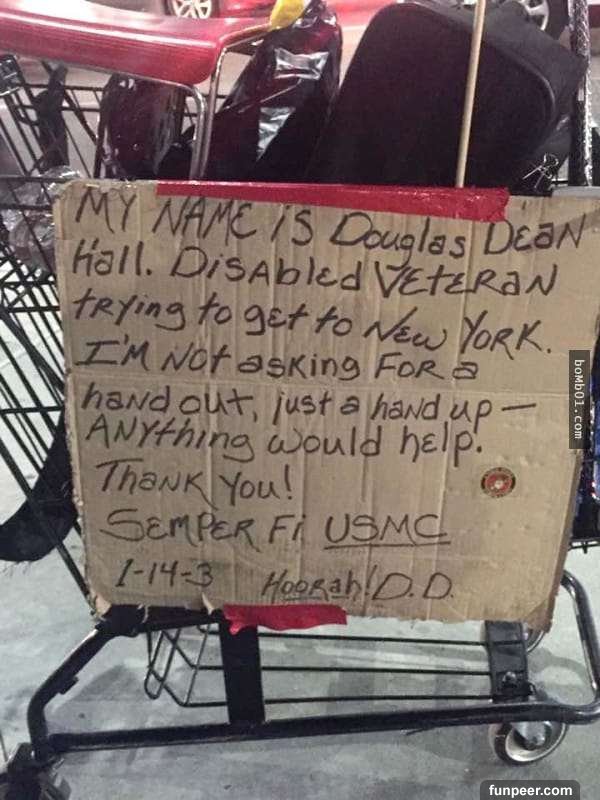 MY NAME iS Douglas DEaN
Hall. DisAblEd VEtERaN
tRying to gEt to NEw YoRK.
I'M Not asking FoR a
haNd out, just a hand up –
ANYthing would hElp.
ThaNK You!
SEMPER Fi USMC
1-14-3 HooRah! D.D.
boMb01.com
funpeer.com